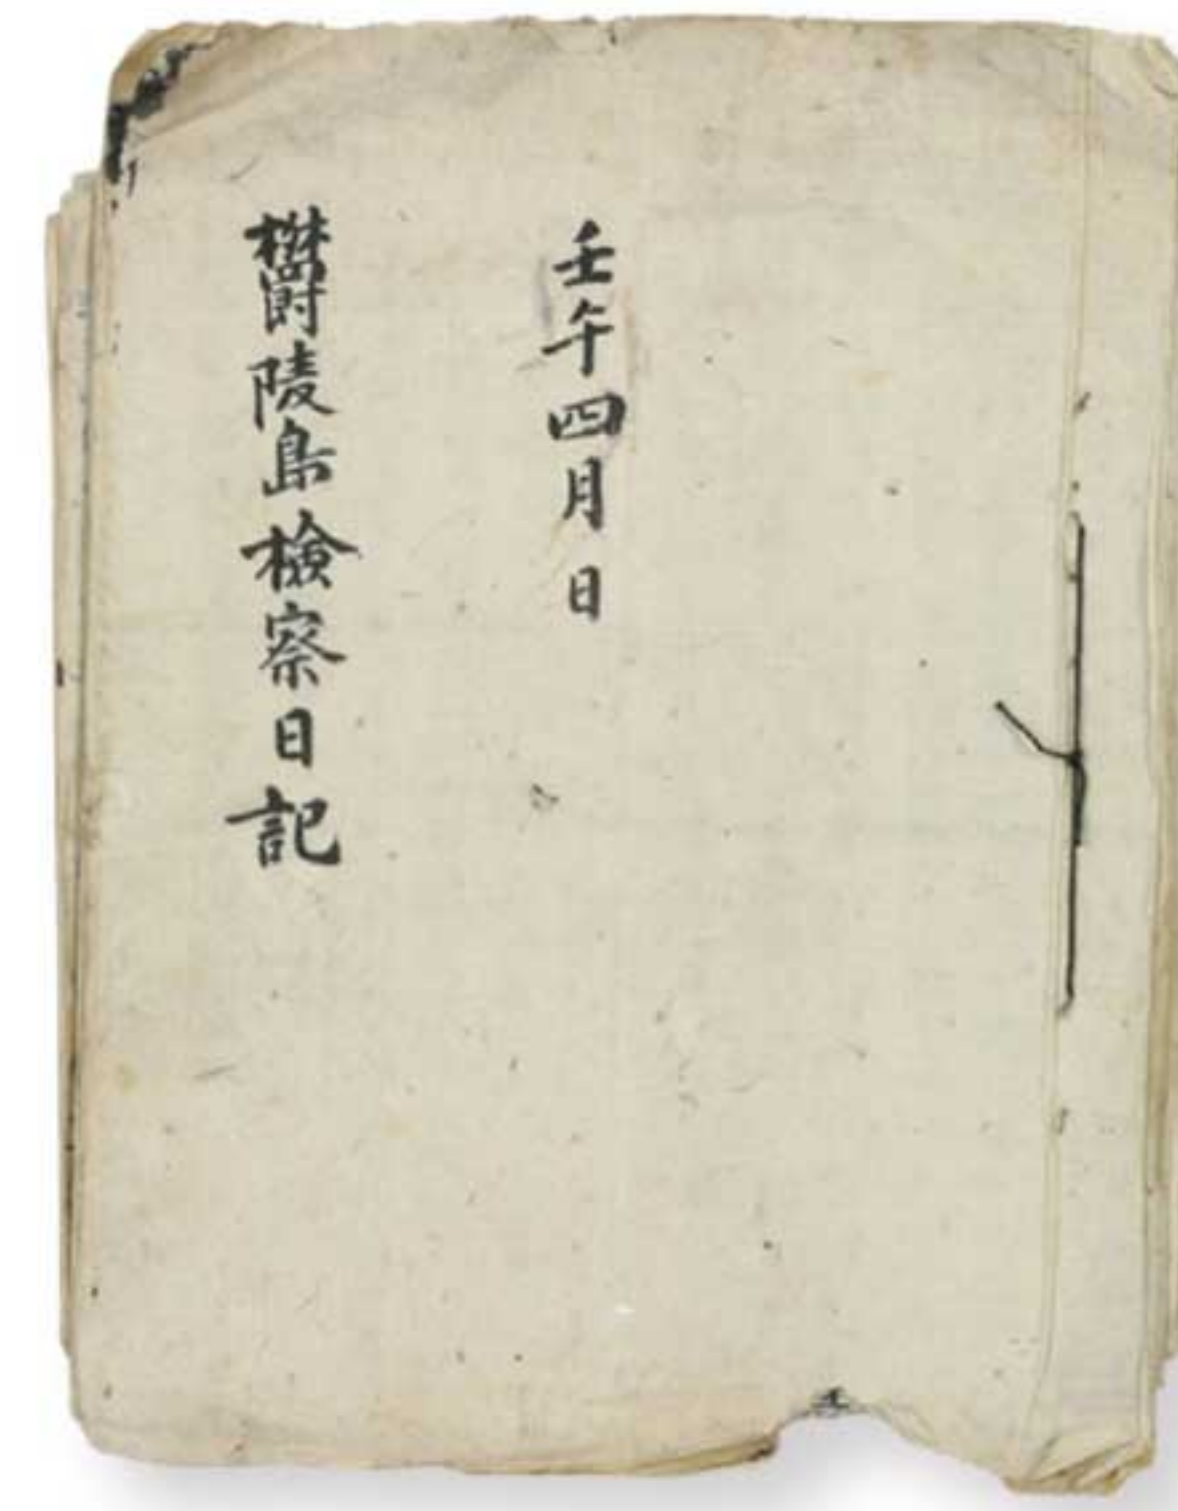 壬午四月日
欝陵島檢察日記